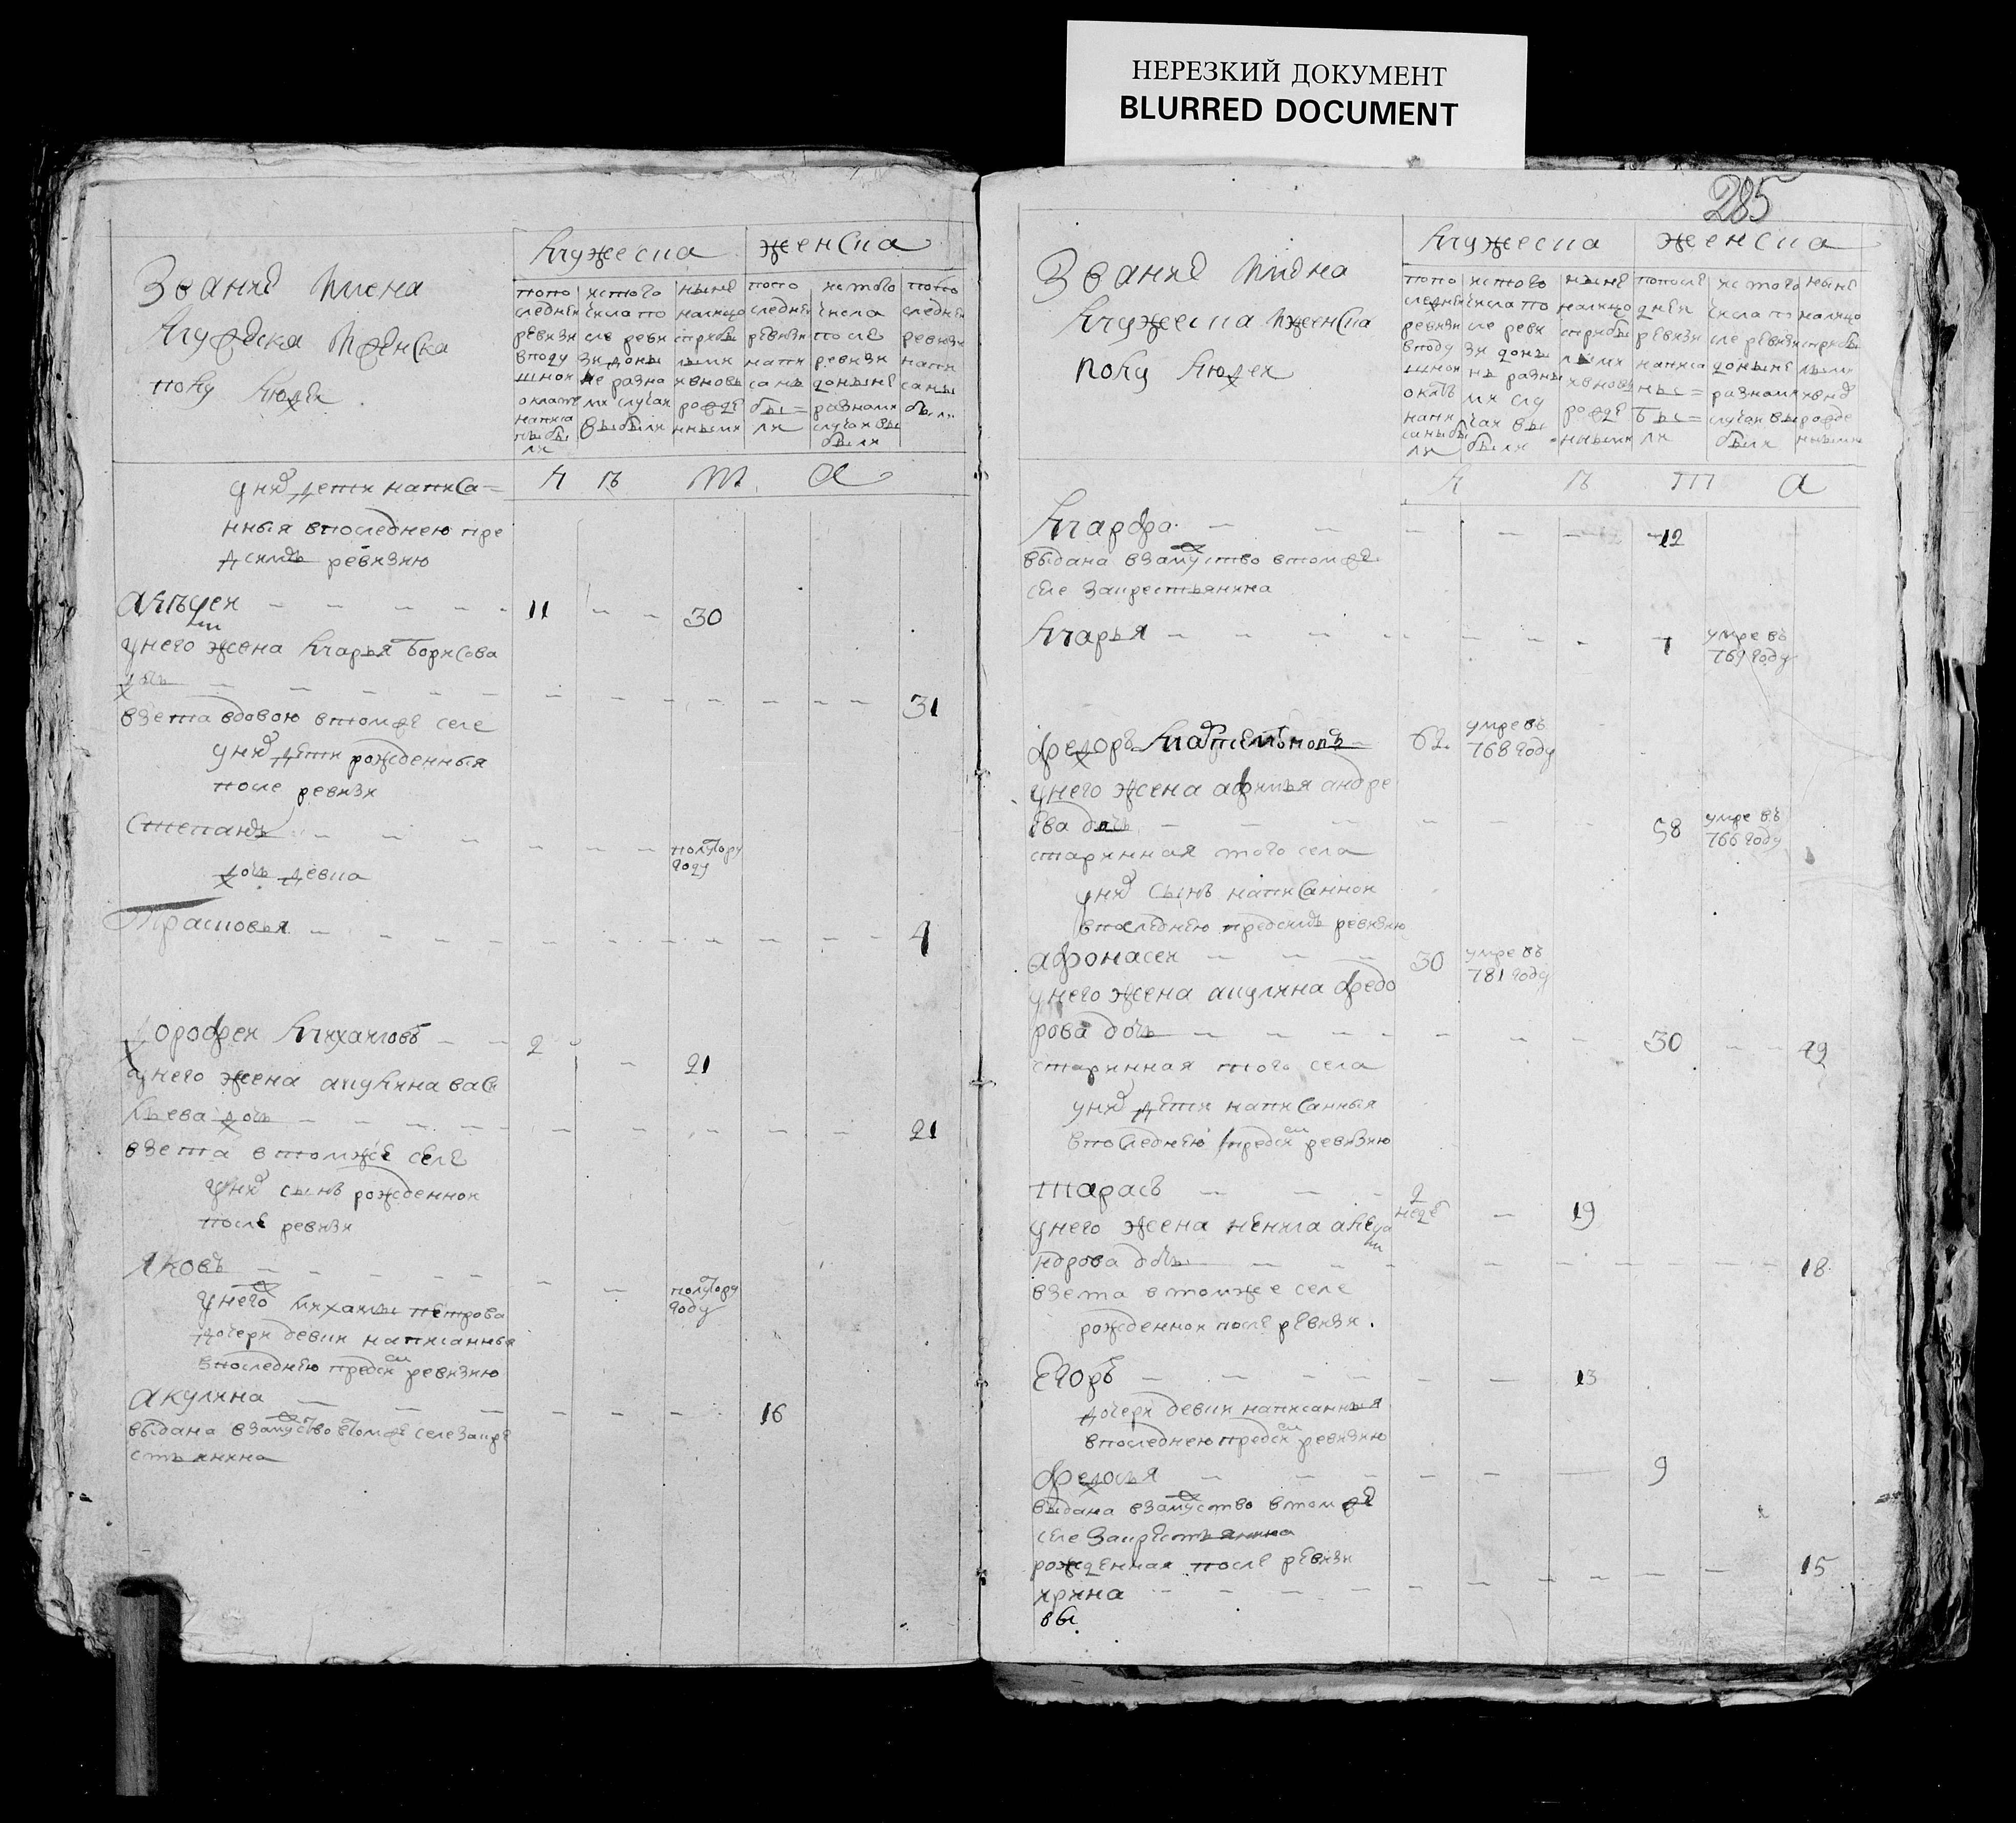 НЕРЕЗКИЙ ДОКУМЕНТ
BLURRED DOCUMENT
Звание имена
мужеска женска
полу людей
мужеска
женска
попо
следнеи
ревизи
вподу
шнои
окладе
написа
ны бы
ли
истого
числа по
сле реви
зи доны
не разны
ми случаи
выбыли
ныне
налицо
с прибы
лыми
и вновь
рожде
нными
попо
следнеи
ревизи
напи
саны
бы=
ли
истого
числа
после
ревизи
доныне
разными
случаи вы
были
попо
следнеи
ревизи
напи
саны
были
л ѣ т а
у них дети написа=
нныя впоследнею пре
д сим ревизию
алѣксеи 11 30
у него жена марья борисова
дочь 31
взета вдовою втомже селе
у них дети рожденныя
после ревизи
Степанъ полтору году
дочь девка
Прасковья 4
Дорофеи михаиловъ 2 21
у него жена акулина васи
льева дочь 21
взета в томже селе
у них сынъ рожденнои
после ревизи
яковъ полтору году
у него михаилы петрова
дочери девки написанныя
впоследнею пред сим ревизию
акулина 16
выдана взамуство втомже селе за кре
стьянина
285
Звание имена
мужеска женска
полу людей
мужеска
женска
попо
следнеи
ревизи
вподу
шнои
окладъ
напи
саны бы
ли
истого
числа по
сле реви
зи доны
не разны
ми слу
чаи вы
были
ныне
налицо
с прибы
лыми
и вновь
рожде
нными
попосле
днеи
ревизи
написа
ны=
бы=
ли
истого
числа по
сле ревизи
доныне
разными
случаи вы
были
ныне
налицо
с прибы
лыми
и внов
рожде
нными
л ѣ т а
Марфа 12
выдана взамуство втомже
селе за крестьянина
Марья 7 умре въ 769 году
федоръ 62 умре въ 768 году
у него жена афимья андре
ева дочь 58 умре въ 766 году
старинная того села
у них сынъ написаннои
впоследнею пред симъ ревизию
афонасеи 30 умре въ 781 году
у него жена акулина федо
рова дочь 30 49
старинная того села
у них дети написанныя
впоследнею пред сим ревизию
тарасъ 2 неде 19
у него жена ненила алекса
ндрова дочь 18
взета в томже селе
рожденнои после ревизи.
Егоръ 13
дочери девки написанныя
впоследнею пред сим ревизию
федосья 9
выдана взамуство втомже
селе за крестьянина
рожденная после ревизи 15
ирина
вы